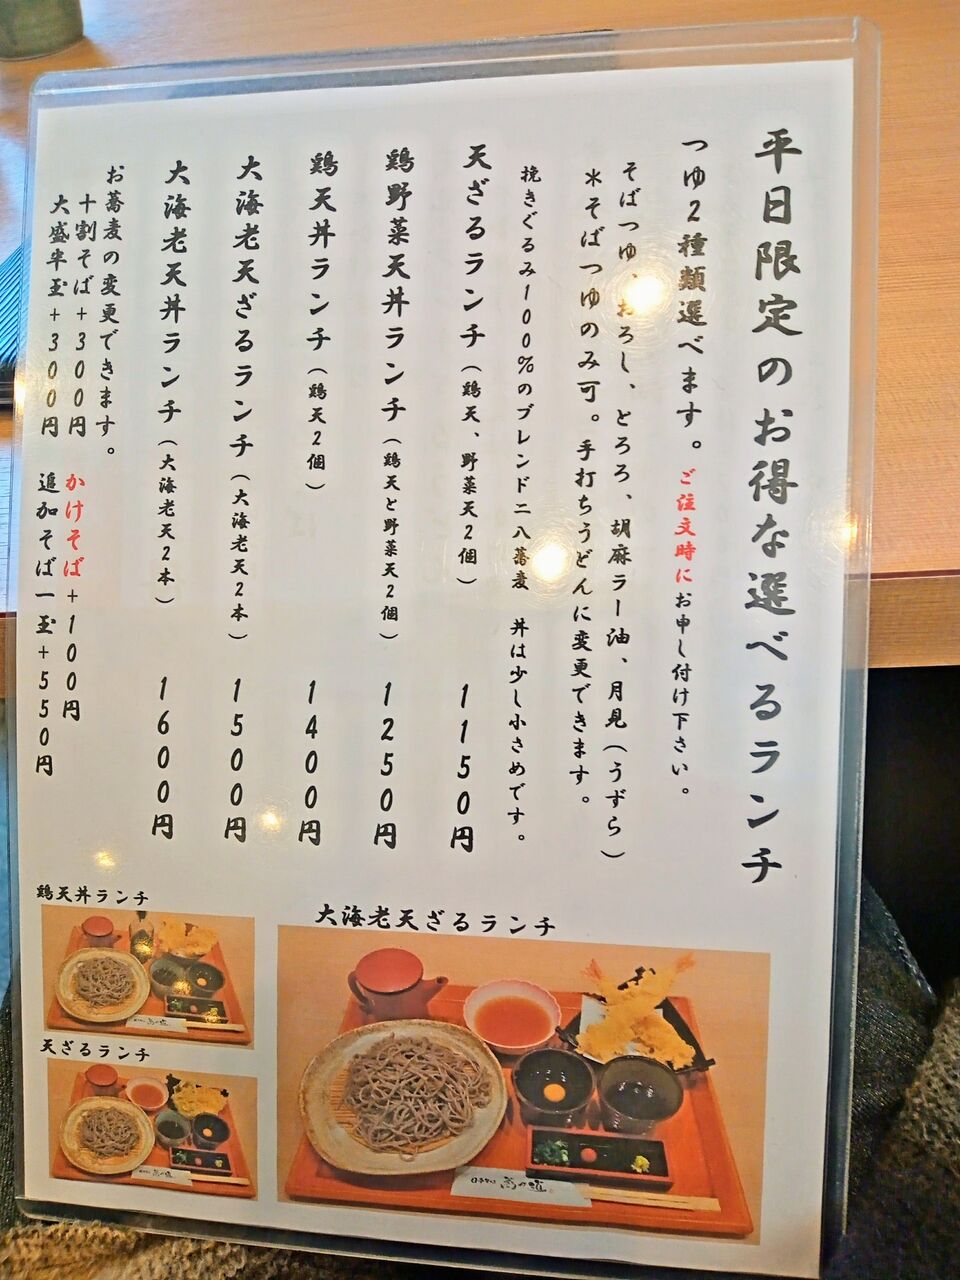 平日限定のお得な選べるランチ
つゆ2種類選べます。ご注文時にお申し付け下さい。
そばつゆ、おろし、とろろ、胡麻ラー油、月見(うずら)
*そばつゆのみ可。手打ちうどんに変更できます。
挽きぐるみ100%のブレンド二八蕎麦 丼は少し小さめです。
天ざるランチ(鶏天、野菜天2個) 1150円
鶏野菜天丼ランチ(鶏天と野菜天2個) 1250円
鶏天丼ランチ(鶏天2個) 1400円
大海老天ざるランチ(大海老天2本) 1500円
大海老天丼ランチ(大海老天2本) 1600円
お蕎麦の変更できます。
十割そば+300円 かけそば+100円
大盛半玉+300円 追加そば一玉+550円
鶏天丼ランチ
天ざるランチ
大海老天ざるランチ